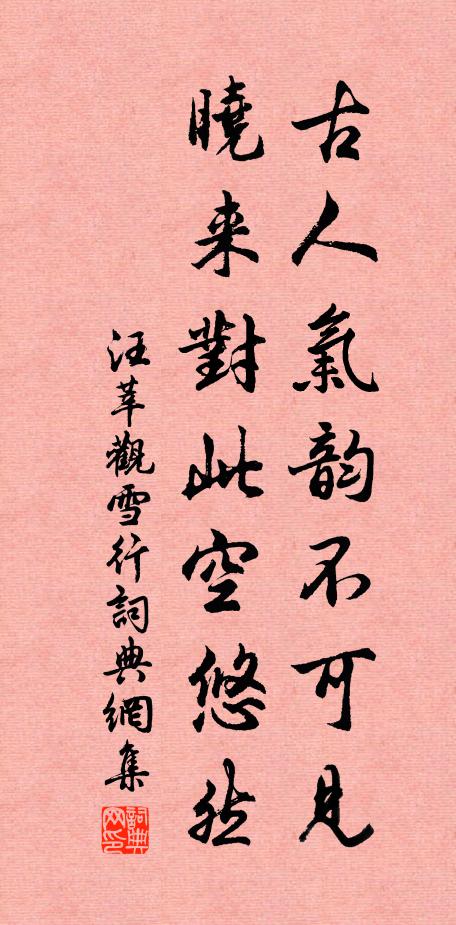 古人氣韵不可見
曉来對此空悠然
汪莘觀雪行詞典網集
詞典网印